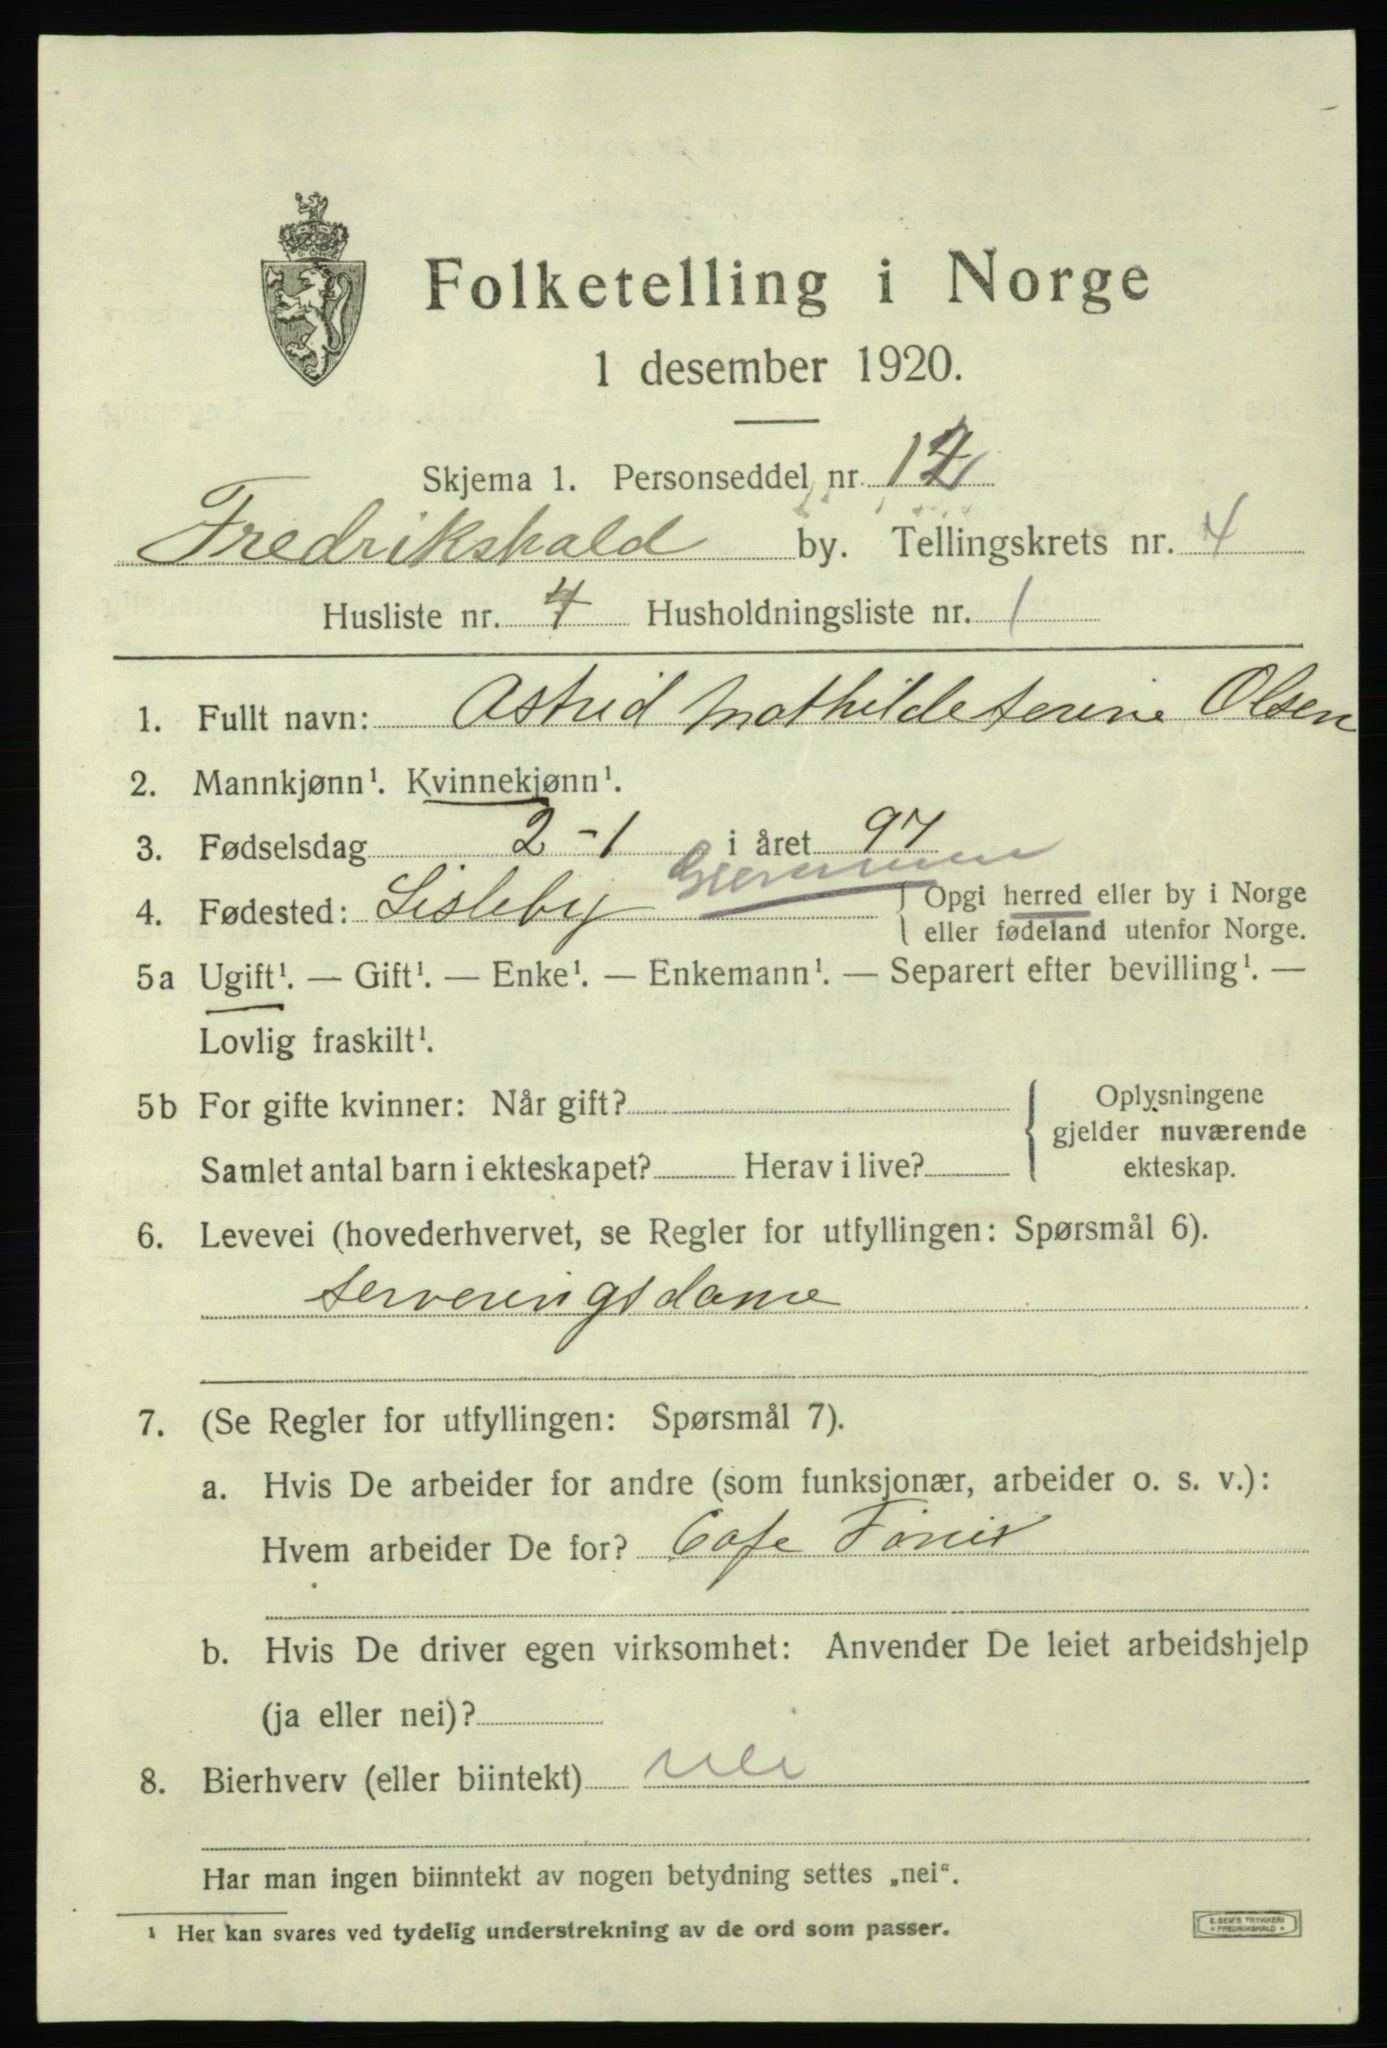 Folketelling i Norge
1 desember 1920.
Skjema 1. Personseddel nr. 12
Fredrikshald by. Tellingskrets nr. 4
Husliste nr. 4 Husholdningsliste nr. 1
1. Fullt navn: Astrid Mathilde serine Olsen
2. Mannkjønn¹. Kvinnekjønn¹.
3. Fødselsdag 2-1 i året 97
4. Fødested: Lisleby Glemmen { Opgi herred eller by i Norge
eller fødeland utenfor Norge.
5a Ugift¹. — Gift¹. — Enke¹. — Enkemann¹. — Separert efter bevilling¹. —
Lovlig fraskilt¹.
5b For gifte kvinner: Når gift? { Oplysningene
gjelder nuværende
Samlet antal barn i ekteskapet? Herav i live? ekteskap.
6. Levevei (hovederhvervet, se Regler for utfyllingen: Spørsmål 6).
serveringsdame
7. (Se Regler for utfyllingen: Spørsmål 7).
a. Hvis De arbeider for andre (som funksjonær, arbeider o. s. v.):
Hvem arbeider De for? Cafe
b. Hvis De driver egen virksomhet: Anvender De leiet arbeidshjelp
(ja eller nei)?
8. Bierhverv (eller biintekt) nei
Har man ingen biinntekt av nogen betydning settes „nei“.
¹ Her kan svares ved tydelig understrekning av de ord som passer.
E. SEM'S TRYKKERI
FREDRIKSHALD